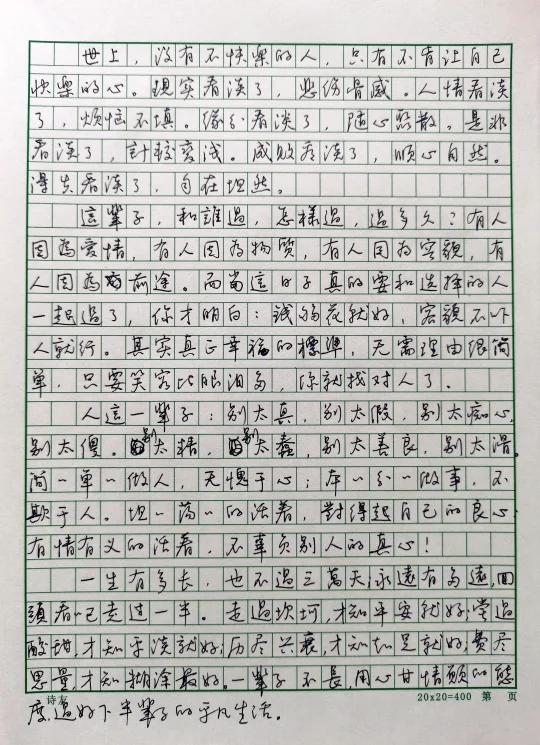 世上，没有不快樂的人，只有不肯让自己
快樂的心。現实看淡了，悲伤骨感。人情看淡
了，烦恼不填。缘分看淡了，随心聚散。是非
看淡了，計較变浅。成败看淡了，順心自然。
得失看淡了，自在坦然。
這輩子，和誰過，怎樣過，過多久？有人
因為爱情，有人因為物質，有人因為容貌，有
人因為前途。而當這日子真的要和选择的人
一起過了，你才明白：錢够花就好，容貌不吓
人就行。其实真正幸福的標準，无需理由很简
單，只要笑容比眼泪多，你就找对人了。
人這一輩子：别太真，别太假，别太痴心，
别太傻。别太精，别太蠢，别太善良，别太滑。
简一單一做人，无愧于心；本一分一做事，不
欺于人。坦一荡一的活着，對得起自己的良心，
有情有义的活着，不辜负别人的真心！
一生有多长，也不過三萬天；永遠有多遠，回
頭看已走过一半。走過坎坷，才知平安就好；嘗過
酸甜，才知平淡就好；历尽兴衰，才知知足就好；费尽
思量，才知糊涂最好。一輩子不長，用心甘情願的態
度，過好下半輩子的平凡生活。
诗友
20x20=400 第 页